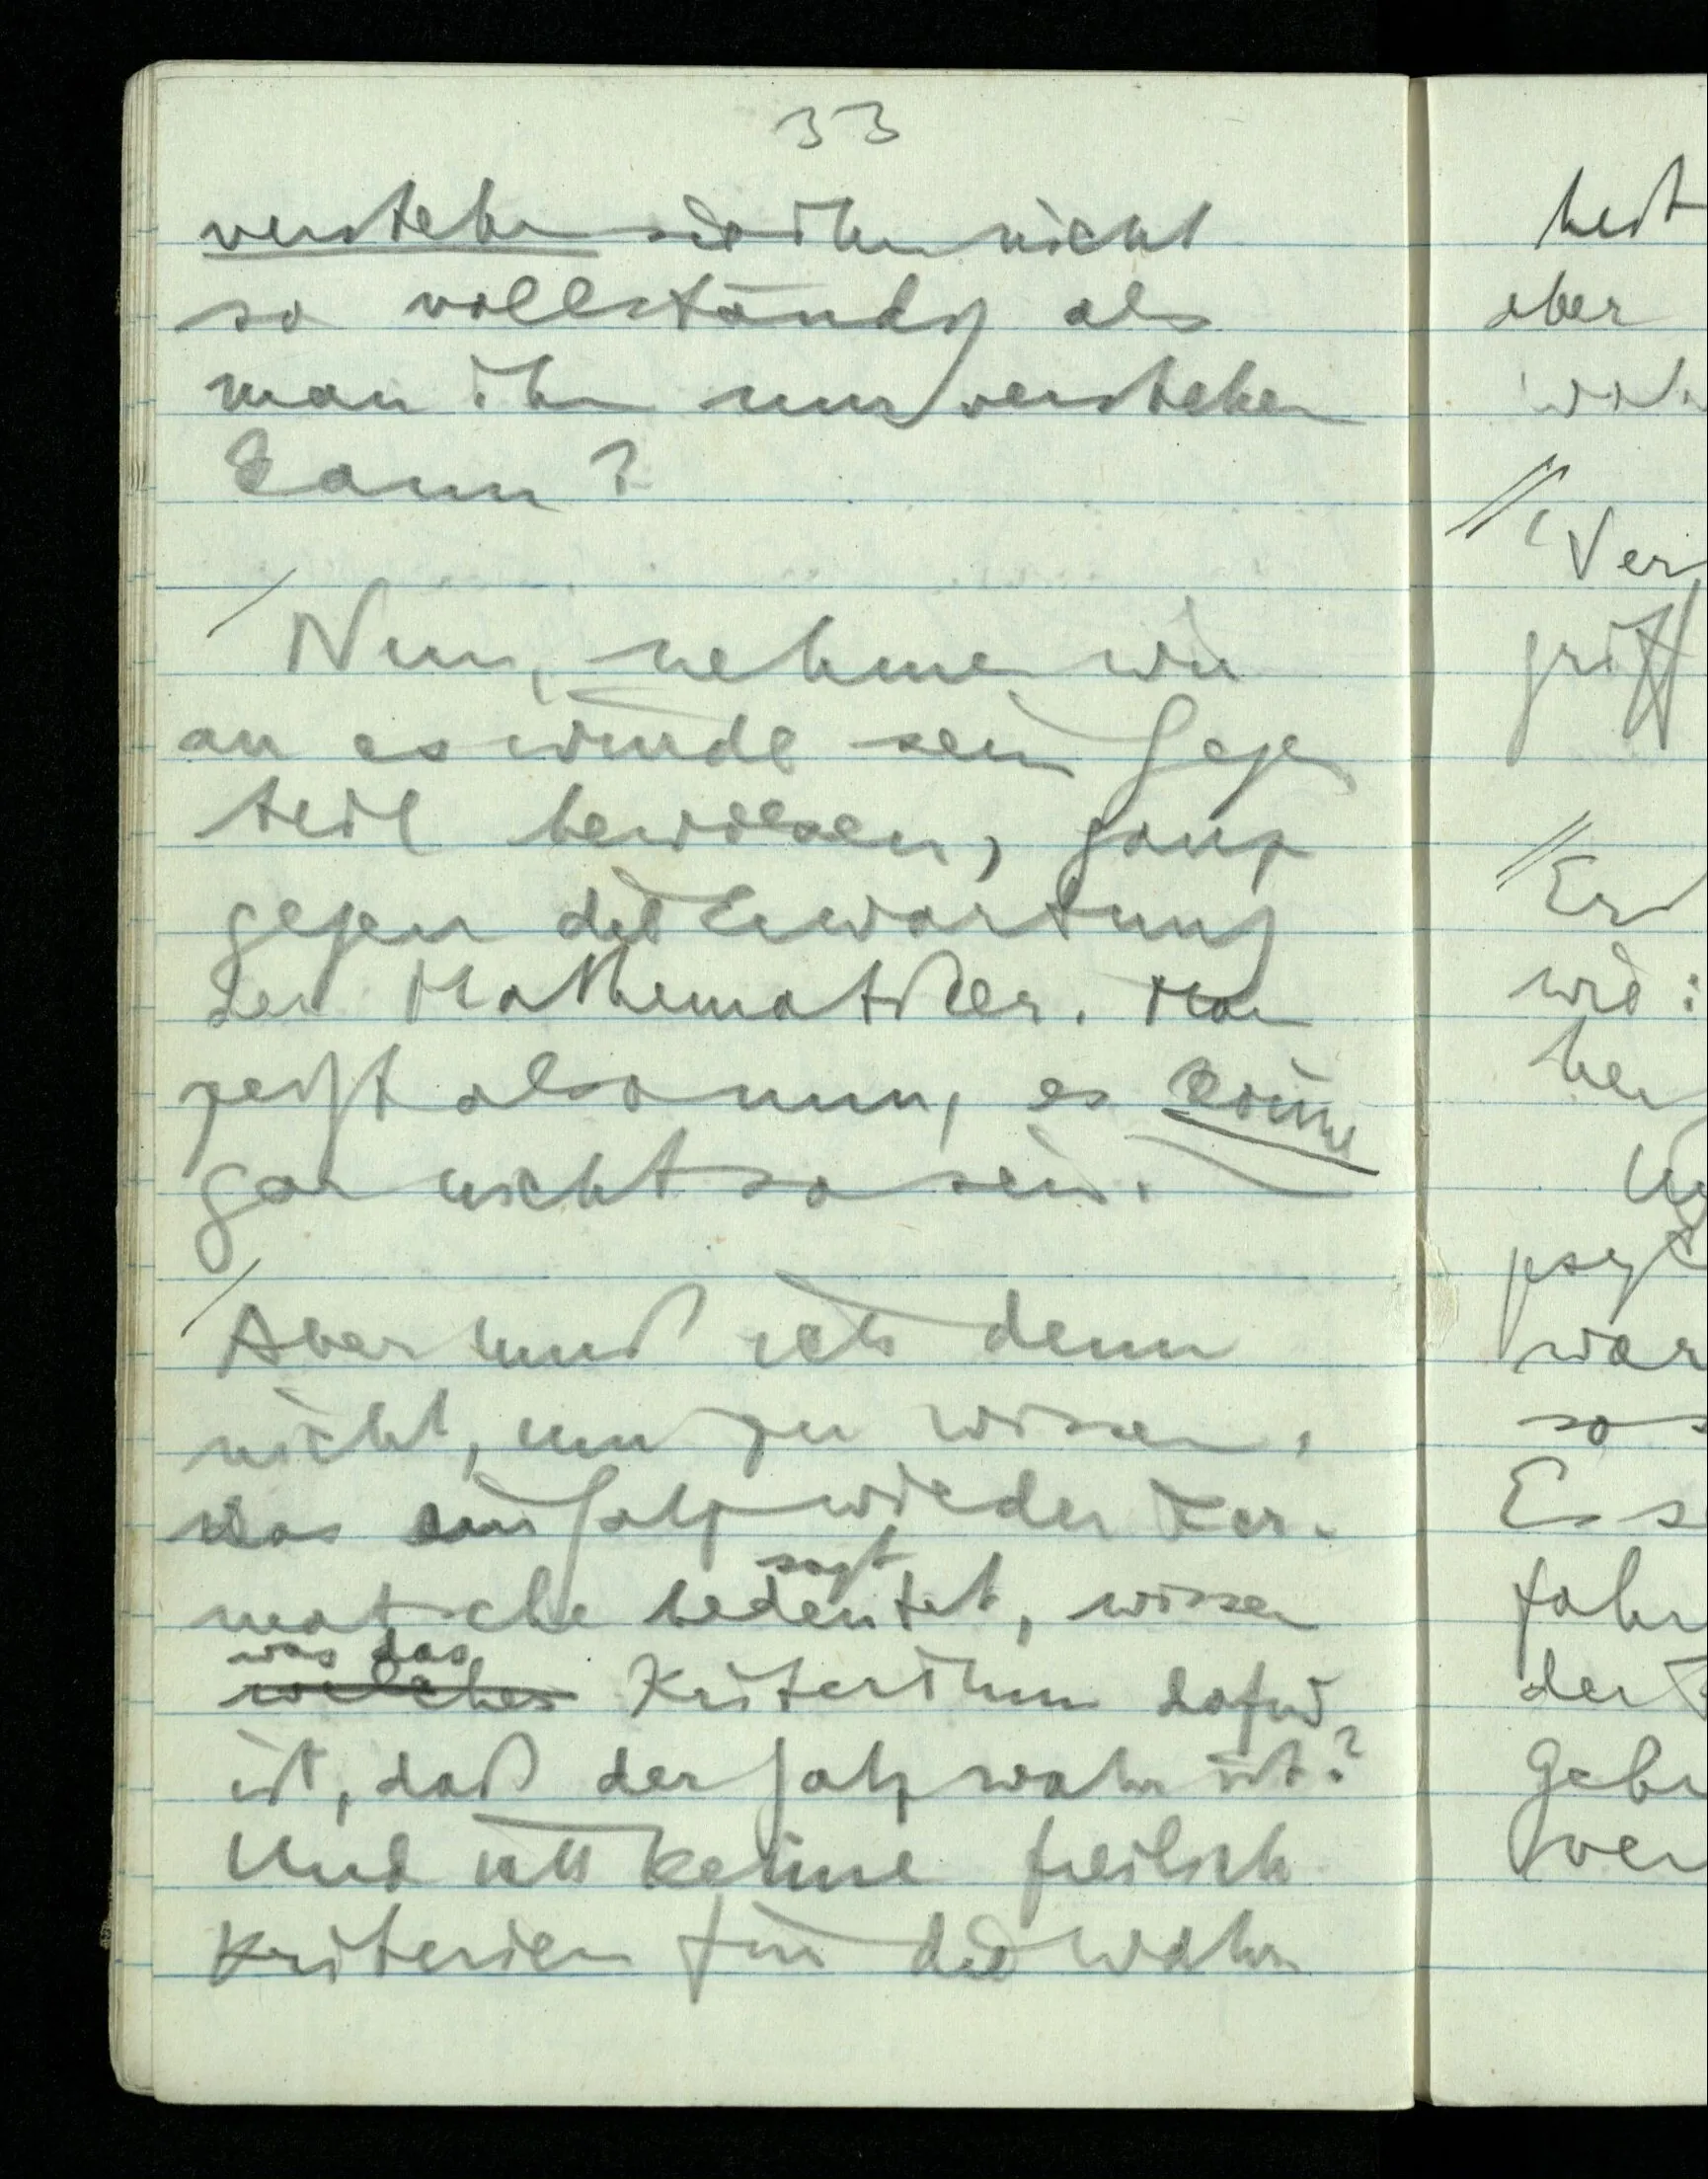 33
verstehen sie ihn nicht
so vollständig als
man ihn nur verstehen
kann?
/ Nun, nehmen wir
an es würde sein Gegen
teil bewiesen, ganz
gegen die Erwartung
der Mathematiker. Man
zeigt also nun, es könne
gar nicht so sein.
/ Aber muß ich denn
nicht, um zu wissen,
was ein Satz wie der Fer-
sagt
matsche bedeutet, wissen
was das
welches Kriterium dafür
ist, daß der Satz wahr ist?
Und ich kenne freilich
Kriterien für die Wahr
heit
aber
// Ver
griff
// Er
wie:
war
so
Es s
der
ver